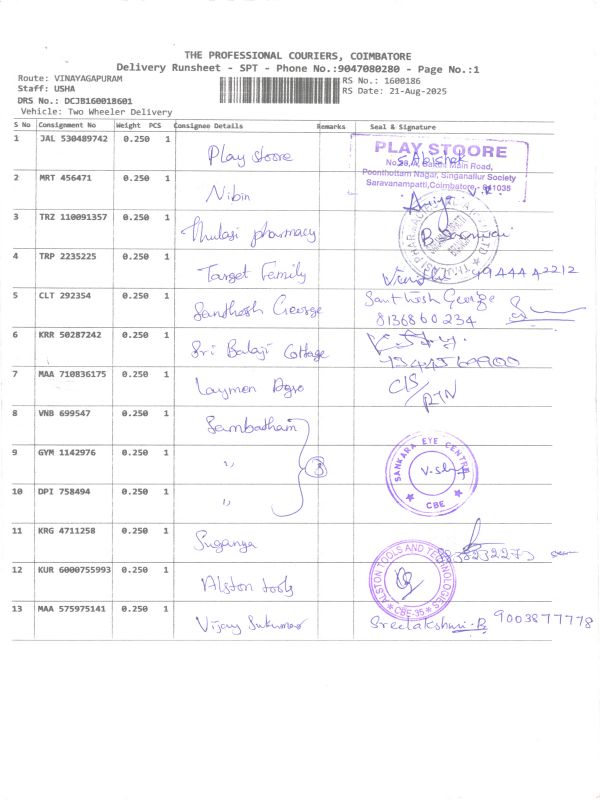 THE PROFESSIONAL COURIERS, COIMBATORE
Delivery Runsheet - SPT - Phone No.:9047080280 - Page No.:1
Route: VINAYAGAPURAM
RS No.: 1600186
Staff: USHA
RS Date: 21-Aug-2025
DRS No.: DCJB160018601
Vehicle: Two Wheeler Delivery
S No Consignment No Weight PCS Consignee Details Remarks Seal & Signature
1 JAL 530489742 0.250 1 Play stoore
PLAY STOORE
Main Road,
Poonthottam Nagar, Singanallur Society
Saravanampatti, Coimbatore - 641035
S. Abishek
2 MRT 456471 0.250 1 Nibin
3 TRZ 110091357 0.250 1 Thulasi pharmacy
4 TRP 2235225 0.250 1 Target Family
5 CLT 292354 0.250 1 Santhosh George Santhosh George
8136860234
6 KRR 50287242 0.250 1 Sri Balaji Cottage
7 MAA 710836175 0.250 1 Laymen Agro CIS/
RTN
8 VNB 699547 0.250 1 Sambatham
9 GYM 1142976 0.250 1 " 3
SANKARA EYE CENTRE
CBE
10 DPI 758494 0.250 1 "
11 KRG 4711258 0.250 1 Suganya
12 KUR 6000755993 0.250 1 Alston tools
ALSTON TOOLS AND TECHNOLOGIES
CBE-35
13 MAA 575975141 0.250 1 Vijay Sukumar Sreelakshmi. R 9003877778